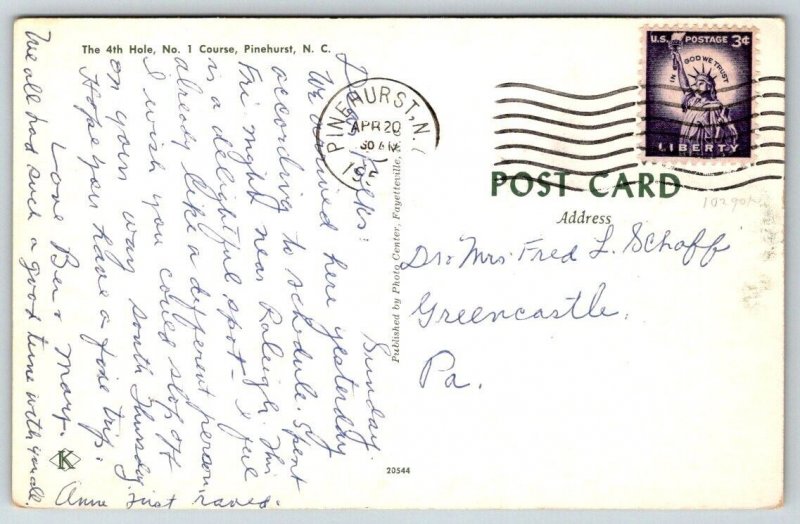 The 4th Hole, No. 1 Course, Pinehurst, N. C.
Sunday
Dear Folks:
We arrived here yesterday
according to schedule. Spent
Fri night near Raleigh. This
is a delightful spot - I feel
already like a different person
I wish you could stop off
on your way south Thursday
Hope you have a fine trip.
Love Bee & Mary.
We all had such a good time with you all.
Anne just raved.
K
Published by Photo Center, Fayetteville,
20544
PINEHURST, N.
APR 20
30 AM
19
U.S. POSTAGE 3¢
IN GOD WE TRUST
LIBERTY
POST CARD
Address
Dr. & Mrs. Fred L. Schaff
Greencastle,
Pa.